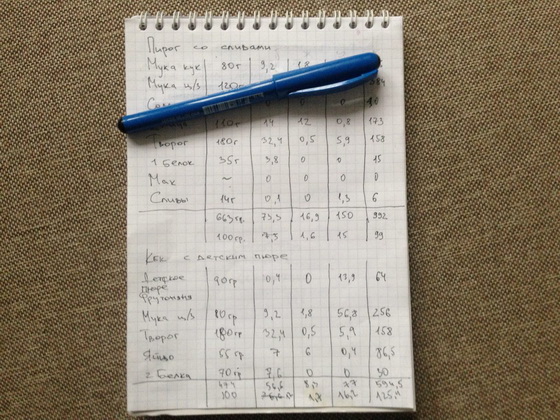 Пирог со сливами
Мука кук 80г 9,2 1,8
Мука ц/з 120г
0 0 0
110г 14 12 0,8 173
Творог 180г 32,4 0,5 5,9 158
1 Белок 35г 3,8 0 0 15
Мак ~ 0 0 0 0
Сливы 14г 0,1 0 1,3 6
663гр. 73,3 16,9 150 992
100гр. 7,5 1,6 15 99
Кекс с детским пюре
Детское пюре 90гр 0,4 0 13,9 64
фруктовая
Мука ц/з 80гр 9,2 1,8 56,8 256
Творог 180гр 32,4 0,5 5,9 158
Яйцо 55гр 7 6 0,4 86,5
2 Белка 70гр 7,6 0 0 30
56,6 77 594,5
100 16,2